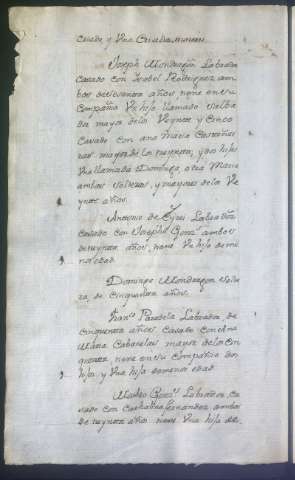 Criado y Una Criada
Joseph Mondragon Labrador
Casado con Isabel Rodriguez am
bos de sesenta años tiene en su
Compañia Un hijo llamado Salba
dor mayor de los Veynte y Cinco
Casado con Ana Maria
mayor de los veynte, y dos hijas
Una llamada Dominga, otra Maria
ambas Solteras, y mayores de los Ve
ynte años.
Antonio de Labrador
Casado con Josepha Gonz.z ambos
de treynta años, tiene Un hijo de me
nor edad.
Dominga Mondragon Solte
ra, de Cinquenta años.
Fran.co Paradela Labrador de
Cinquenta años Casado con Ana
Maria Cabarcos mayor de los Cin
quenta tiene en su Compañia dos
hijos y Una hija de menor edad
Gonz.z Labrador, Ca
sado con Cathalina Fernandez ambos
de treynta años tiene Una hija de